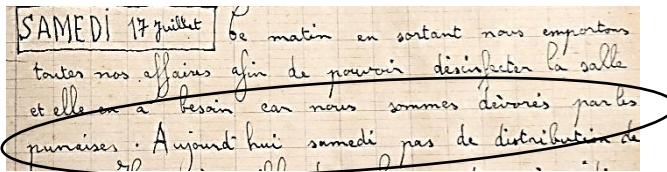 SAMEDI 17 Juillet Ce matin en sortant nous emportons
toutes nos affaires afin de pouvoir désinfecter la salle
et elle en a besoin car nous sommes dévorés par les
punaises. Aujourd'hui samedi pas de distribution de